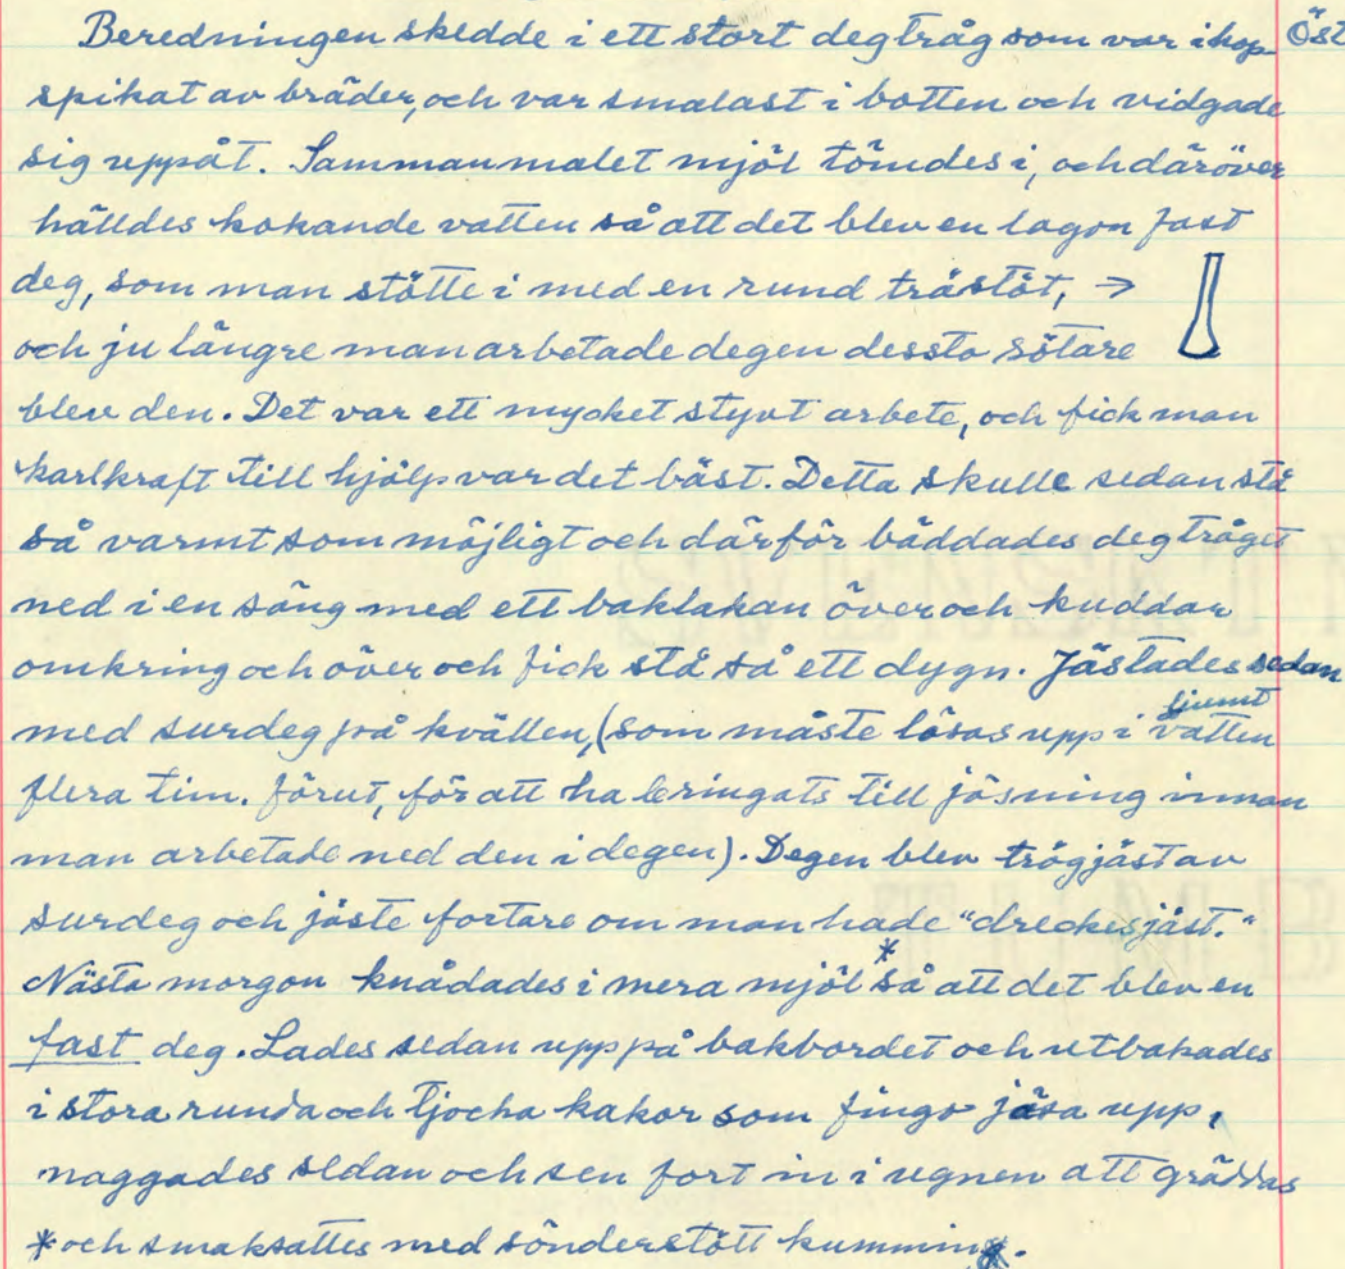 Beredningen skedde i ett stort degtråg som var ihop- Öst
spikat av bräder, och var smalast i botten och vidgade
sig uppåt. Sammanmalet mjöl tömdes i, och däröver
hälldes kokande vatten så att det blev en lagon fast
deg, som man stötte i med en rund trästöt, →
och ju längre man arbetade degen dessto sötare
blev den. Det var ett mycket styvt arbete, och fick man
karlkraft till hjälp var det bäst. Detta skulle sedan stå
så varmt som möjligt och därför bäddades degtråget
ned i en säng med ett baklakan över och kuddar
omkring och över och fick stå så ett dygn. Jästades sedan
ljumt
med surdeg på kvällen, (som måste lösas upp i vatten
flera tim. förut, för att ha bringats till jäsning innan
man arbetade ned den i degen). Degen blev trögjäst av
surdeg och jäste fortare om man hade "dreckesjäst."
Nästa morgon knådades i mera mjöl * så att det blev en
fast deg. Lades sedan upp på bakbordet och utbakades
i stora runda och tjocka kakor som fingo jäsa upp,
naggades sedan och sen fort in i ugnen att gräddas
* och smaksattes med sönderstött kummin.